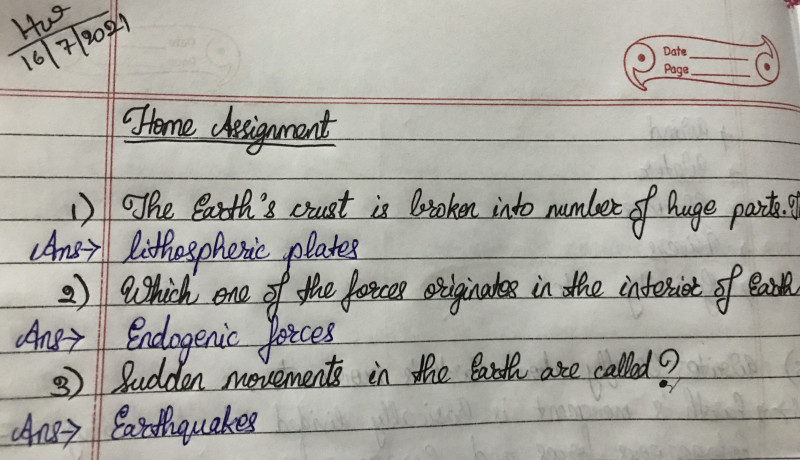 Hw
16/7/2021
Date
Page
Home Assignment
1) The Earth's crust is broken into number of huge parts.
Ans→ lithospheric plates
2) Which one of the forces originates in the interior of Earth
Ans→ Endogenic forces
3) Sudden movements in the Earth are called?
Ans→ Earthquakes